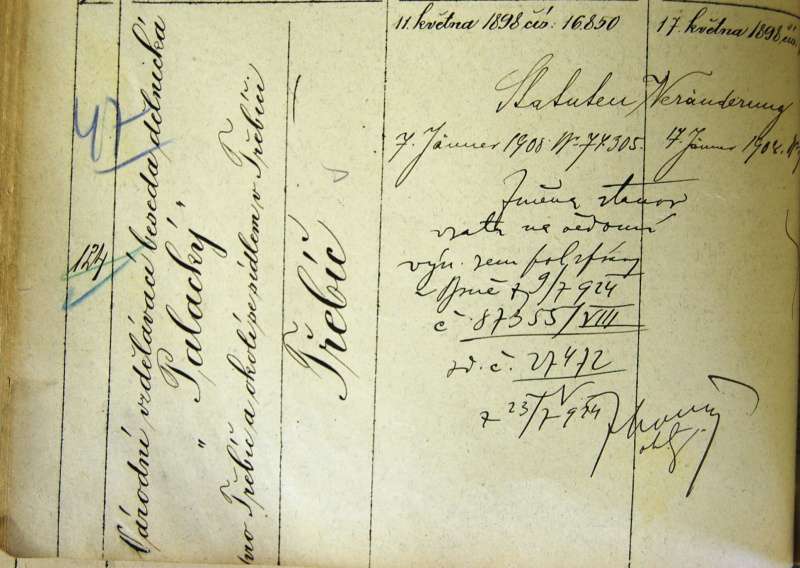 47
124
Národně vzdělávací beseda dělnická
„Palacký“
pro Třebíč a okolí se sídlem v Třebíči
Třebíč
11. května 1898 čís: 16.850
17. května 1898 čís.
Statuten Veränderung
7. Jänner 1908 Nr 77.305.
17. Jänner 1908. Nr
Změna stanov
vzata na vědomí
výn. zem pol. správy
v Brně z 9/7 924
č. 87355/VIII
sd. č. 27472
z 23/7 924